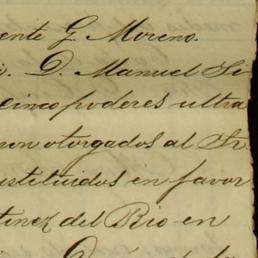 ente G. Moreno.
D. Manuel Si
cinco poderes ultra
ron otorgados al Sr
ustituidos en favor
tinez del Rio en